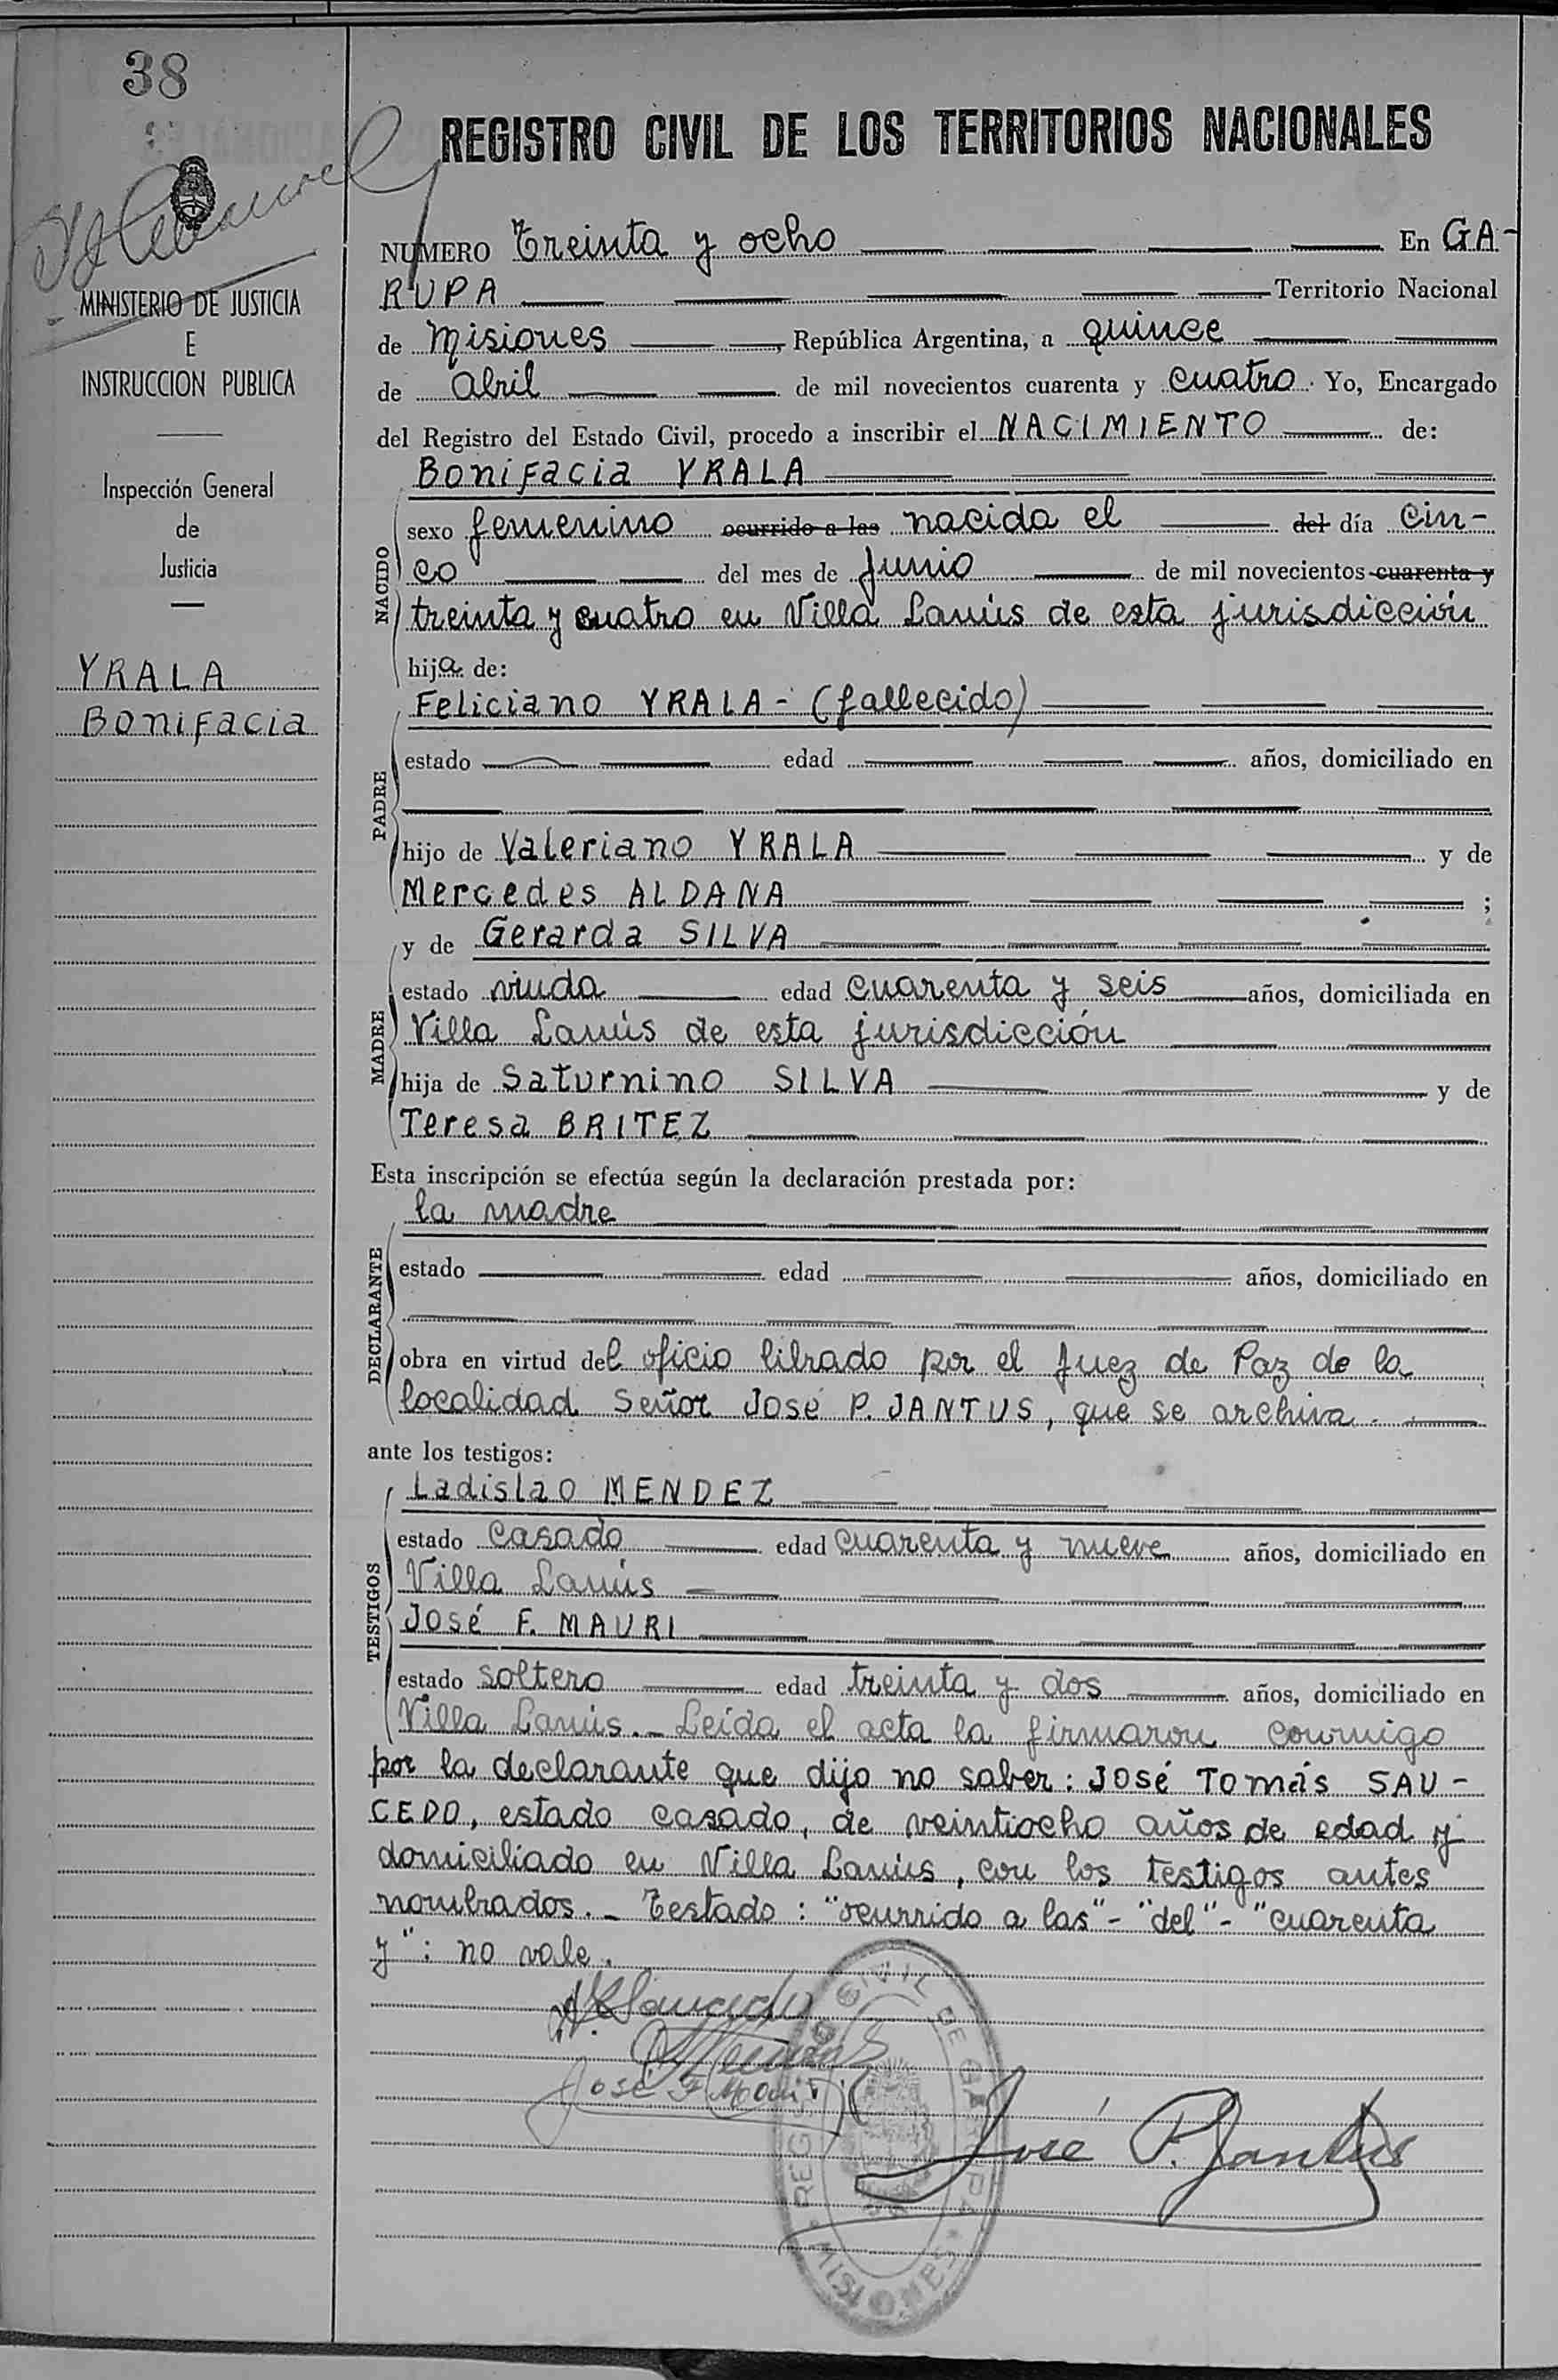 38
REGISTRO CIVIL DE LOS TERRITORIOS NACIONALES
NUMERO Treinta y ocho En GA-
RUPA Territorio Nacional
de Misiones, República Argentina, a quince
de Abril de mil novecientos cuarenta y cuatro. Yo, Encargado
del Registro del Estado Civil, procedo a inscribir el NACIMIENTO de:
Bonifacia YRALA
sexo femenino ocurrido a las nacida el del día cin-
co del mes de Junio de mil novecientos cuarenta y
treinta y cuatro en Villa Lanús de esta jurisdicción
hija de:
Feliciano YRALA - (fallecido)
estado edad años, domiciliado en
hijo de Valeriano YRALA y de
Mercedes ALDANA ;
y de Gerarda SILVA
estado viuda edad cuarenta y seis años, domiciliada en
Villa Lanús de esta jurisdicción
hija de Saturnino SILVA y de
Teresa BRITEZ
Esta inscripción se efectúa según la declaración prestada por:
la madre
estado edad años, domiciliado en
obra en virtud del oficio librado por el Juez de Paz de la
localidad Señor José P. JANTUS, que se archiva.
ante los testigos:
Ladislao MENDEZ
estado casado edad cuarenta y nueve años, domiciliado en
Villa Lanús
José F. MAURI
estado soltero edad treinta y dos años, domiciliado en
Villa Lanús._ Leída el acta la firmaron conmigo
por la declarante que dijo no saber: José Tomás SAU-
CEDO, estado casado, de veintiocho años de edad y
domiciliado en Villa Lanús, con los testigos antes
nombrados._ Testado: "ocurrido a las"- "del"- "cuarenta
y": no vale.
José F Mauri
José P. Jantus
REGISTRO CIVIL DE GARUPA
MISIONES
MINISTERIO DE JUSTICIA
E
INSTRUCCION PUBLICA
Inspección General
de
Justicia
YRALA
Bonifacia
NACIDO
PADRE
MADRE
DECLARANTE
TESTIGOS